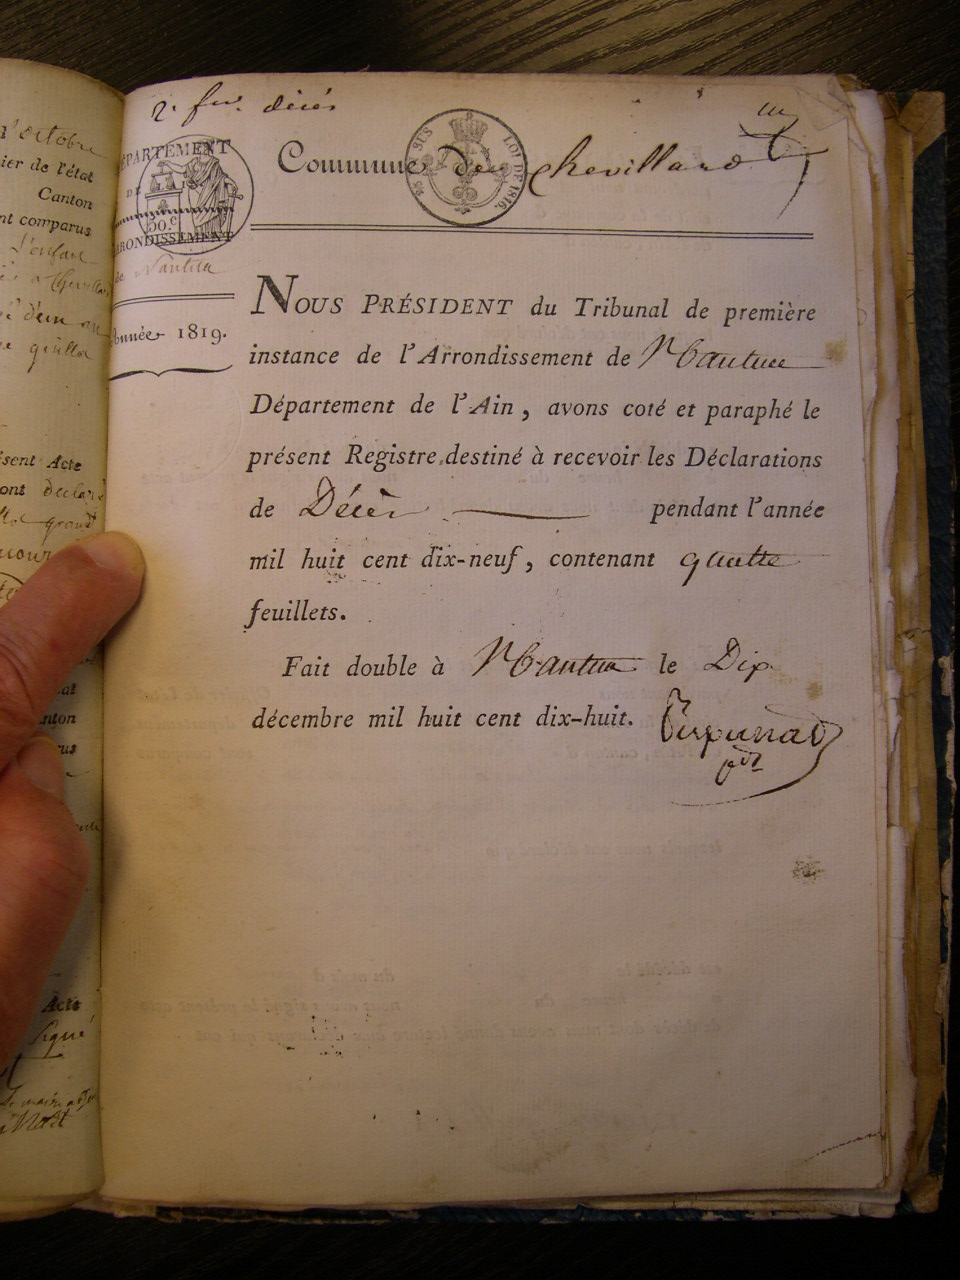 décès
Commune de Chevillard
DÉPARTEMENT
DE L'AIN
50.c
ARRONDISSEMENT
de Nantua
Année 1819.
SUS
LOI DE 1816.
NOUS PRÉSIDENT du Tribunal de première
instance de l'Arrondissement de Nantua
Département de l'Ain, avons coté et paraphé le
présent Registre destiné à recevoir les Déclarations
de Décès pendant l'année
mil huit cent dix-neuf, contenant quatre
feuillets.
Fait double à Nantua le Dix
décembre mil huit cent dix-huit.
octobre
ier de l'état
Canton
nt comparus
L'enfant
ésent Acte
ont déclaré
Acte
signé